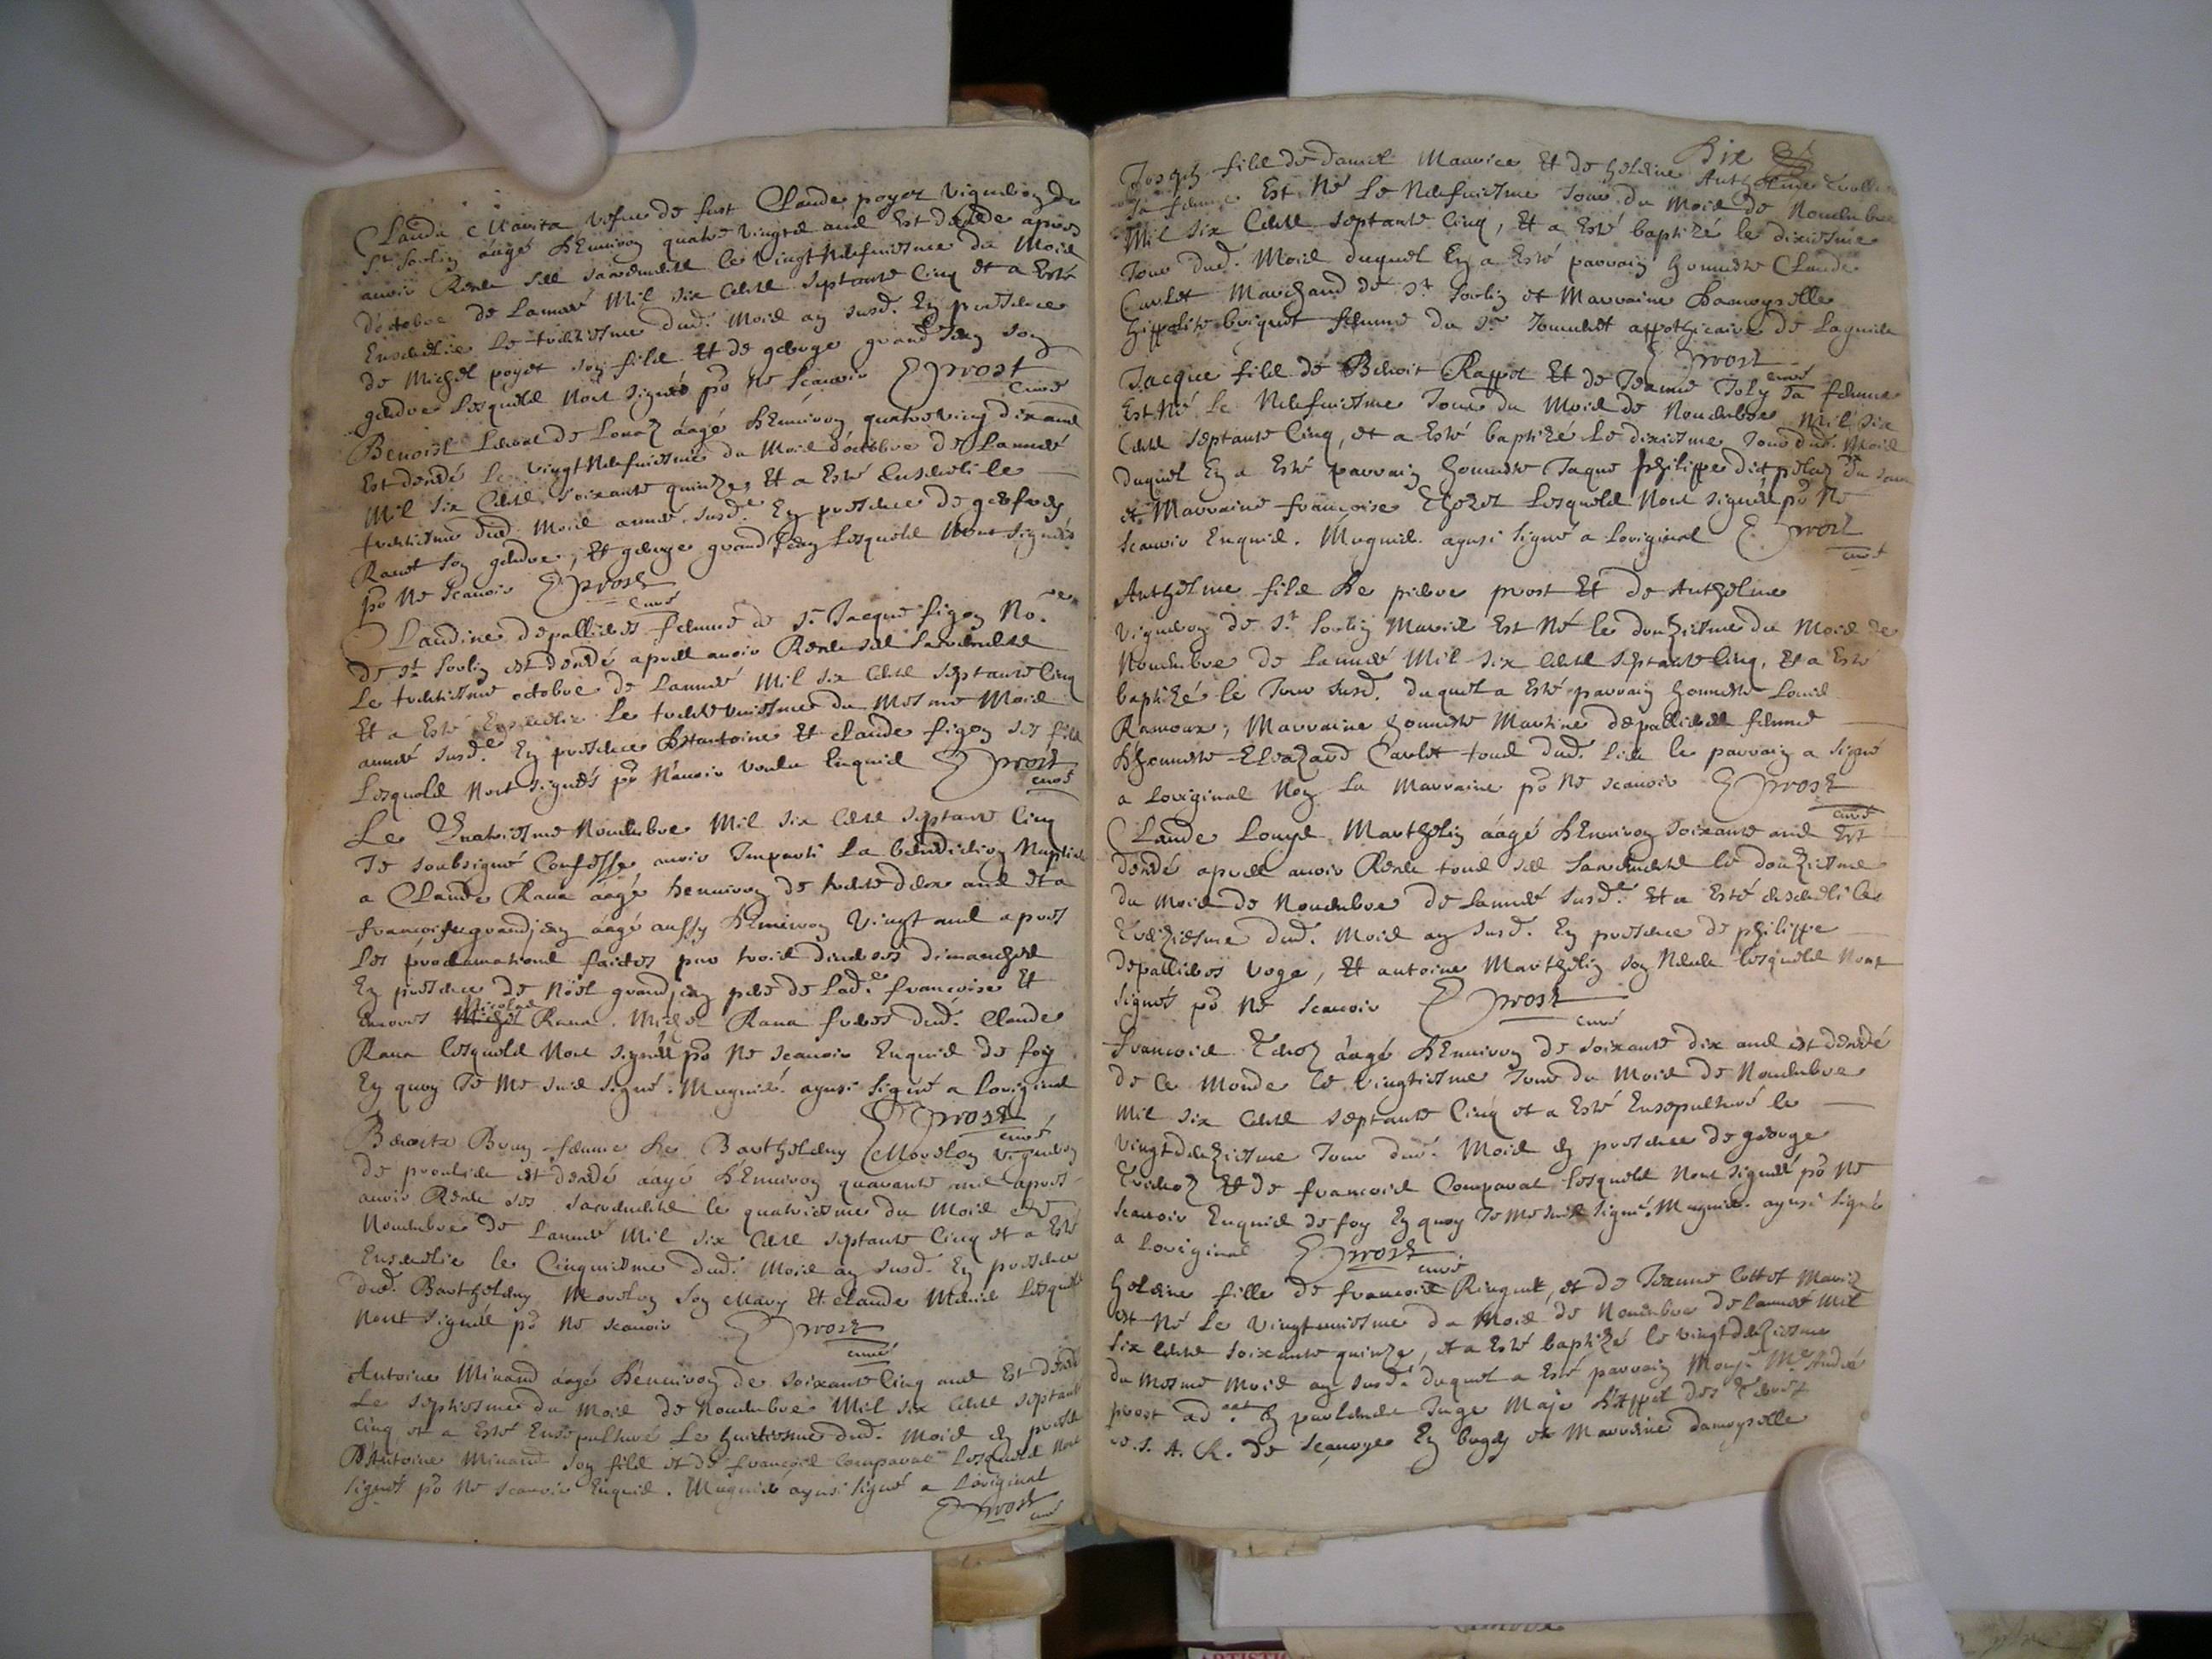 Clauda Mavita vefue de fust Claude poyet vigneron de
St Sorlin áagé d'Environ quatre vingtz ans Est decede apres
auoir Receu ses sacrements le vingtneufuiesme du Mois
d'octobre de Lannée Mil six cents septante cinq et a Esté
Enseuelie le trentiesme dud. Mois an susd. En presence
de Michel poyet son filz Et de george grand Jean son
gendre Lesquels n'ont signés po ne scauoir E Prost
curé
Benoist de Lonaz áagé d'Environ quatre ving dix ans
Est decedé le vingtneufuiesme du Mois d'octobre de Lannée
Mil six cents soixante quinze, Et a Esté Enseueli le
trentiesme dud. Mois année susd.e En presence de geofrey
Ravet son gendre, Et george grand Jean Lesquels n'ont signés
po ne scauoir E Prost
curé
Claudine depallieres femme de Sr Jacque figon No.re
de St Sorlin est decedé apres auoir Receu ses sacrements
Le trentiesme octobre de Lannée Mil six cents septante cinq
Et a Esté Enseuelie le trente uniesme du Mesme Mois
année susd.e En presence d'Antoine Et claude figon ses fils
Lesquels n'ont signés po n'auoir voulu Enquis E Prost
curé
Le Quatriesme Nouembre Mil six cents septante cinq
Je soubsigné Confesse auoir Imparti La benediction Nuptiale
a Claude Rana áagé d'enuiron de trente deux ans et a
francoise grandjean áagé aussy d'Environ vingt ans apres
Les proclamations faictes par trois diuerses dimanches
En presence de Noel grandjean pere de Lad.e francoise Et
encores Nicolas Rana. Michel Rana freres dud. Claude
Rana lesquels n'ont signés po ne scauoir Enquis de foy
En quoy Je me suis signé. Mugnier. aynsi signé a Loriginal
E Prost
curé
Benoite Brun femme de Barthelemy Morelon vigneron
de est decedé áagé d'Environ quarante ans apres
auoir Receu ses sacrements le quatriesme du Mois de
Nouembre de Lannée Mil six cents septante cinq et a Esté
Enseuelie le Cinquiesme dud. Mois an susd. En presence
dud. Barthelemy Morelon son Mary Et claude Lesquels
n'ont signés po ne scauoir E Prost
curé
Antoine Minand áagé d'enuiron de soixante cinq ans Est decedé
Le septiesme du Mois de Nouembre Mil six cents septante
cinq et a Esté Ensepulturé Le huictiesme dud. Mois En presence
d'Antoine Minand son fils et de francois Comparat Lesquels n'ont
signés po ne scauoir Enquis. Mugnier aynsi signé a Loriginal
E Prost
curé
Dix
Joseph fils de daniel Maurice Et de Anthelme
sa femme Est Né Le Neufuiesme Jour du Mois de Nouembre
Mil six cents septante Cinq, Et a Esté baptizé le dixiesme
Jour dud. Mois duquel En a Esté parrain honneste Claude
Carlet Marchand de St Sorlin et Marraine damoyselle
hippolite briquet femme du Sr appothicaire de Lagnieu
E Prost
curé
Jacque fils de Benoit Rappet Et de Jeanne Joly sa femme
Est Né le Neufuiesme Jour du Mois de Nouembre Mil six
cents septante cinq, et a Esté baptizé le dixiesme Jour dud. Mois
duquel En a Esté parrain honneste Jaque philippe dict
et Marraine francoise Lesquels n'ont signés po ne
scauoir Enquis. Mugnier. aynsi signé a Loriginal E Prost
curé
Anthelme fils de pierre prost Et de Anthelme
Vigneron de St Sorlin Mariés Est Né le douziesme du Mois de
Nouembre de Lannée Mil six cents septante cinq, Et a Esté
baptizé le Jour susd. duquel a Esté parrain honneste Louis
Ramoux; Marraine honneste Martine depallieres femme
d'honneste Eleazard Carlet tous dud. lieu le parrain a signé
a Loriginal Non La Marraine po ne scauoir E Prost
curé
Claude Louys Marthelin áagé d'Environ soixante ans Est
decedé apres auoir Receu tous ses sacrements le douziesme
du Mois de Nouembre de Lannée susd.e Et a Esté enseueli le
treziesme dud. Mois an susd. En presence de philippe
depallieres Voge, Et antoine Marthelin son Neueu lesquels n'ont
signés po ne scauoir E Prost
curé
francois áagé d'Environ de soixante dix ans est decedé
de ce Monde le vingtiesme Jour du Mois de Nouembre
Mil six cents septante cinq et a Esté Ensepulturé le
vingtdeuziesme Jour dud. Mois en presence de george
Et de francois Comparat Lesquels n'ont signés po ne
scauoir Enquis de foy En quoy Je me suis signé. Mugnier. aynsi signé
a Loriginal E Prost
curé
fille de francois Ringuet, et de Jeanne Cottet Mariés
est Né Le vingtuniesme du Mois de Nouembre de Lannée Mil
six cents soixante quinze, et a Esté baptizé le vingtdeuziesme
du Mesme Mois an susd. duquel a Esté parrain Monsr Me André
prost ad.cat En parlement Juge Maje d'appel des terres
de S. A. R. de Scauoye En bugey et Marraine damoyselle